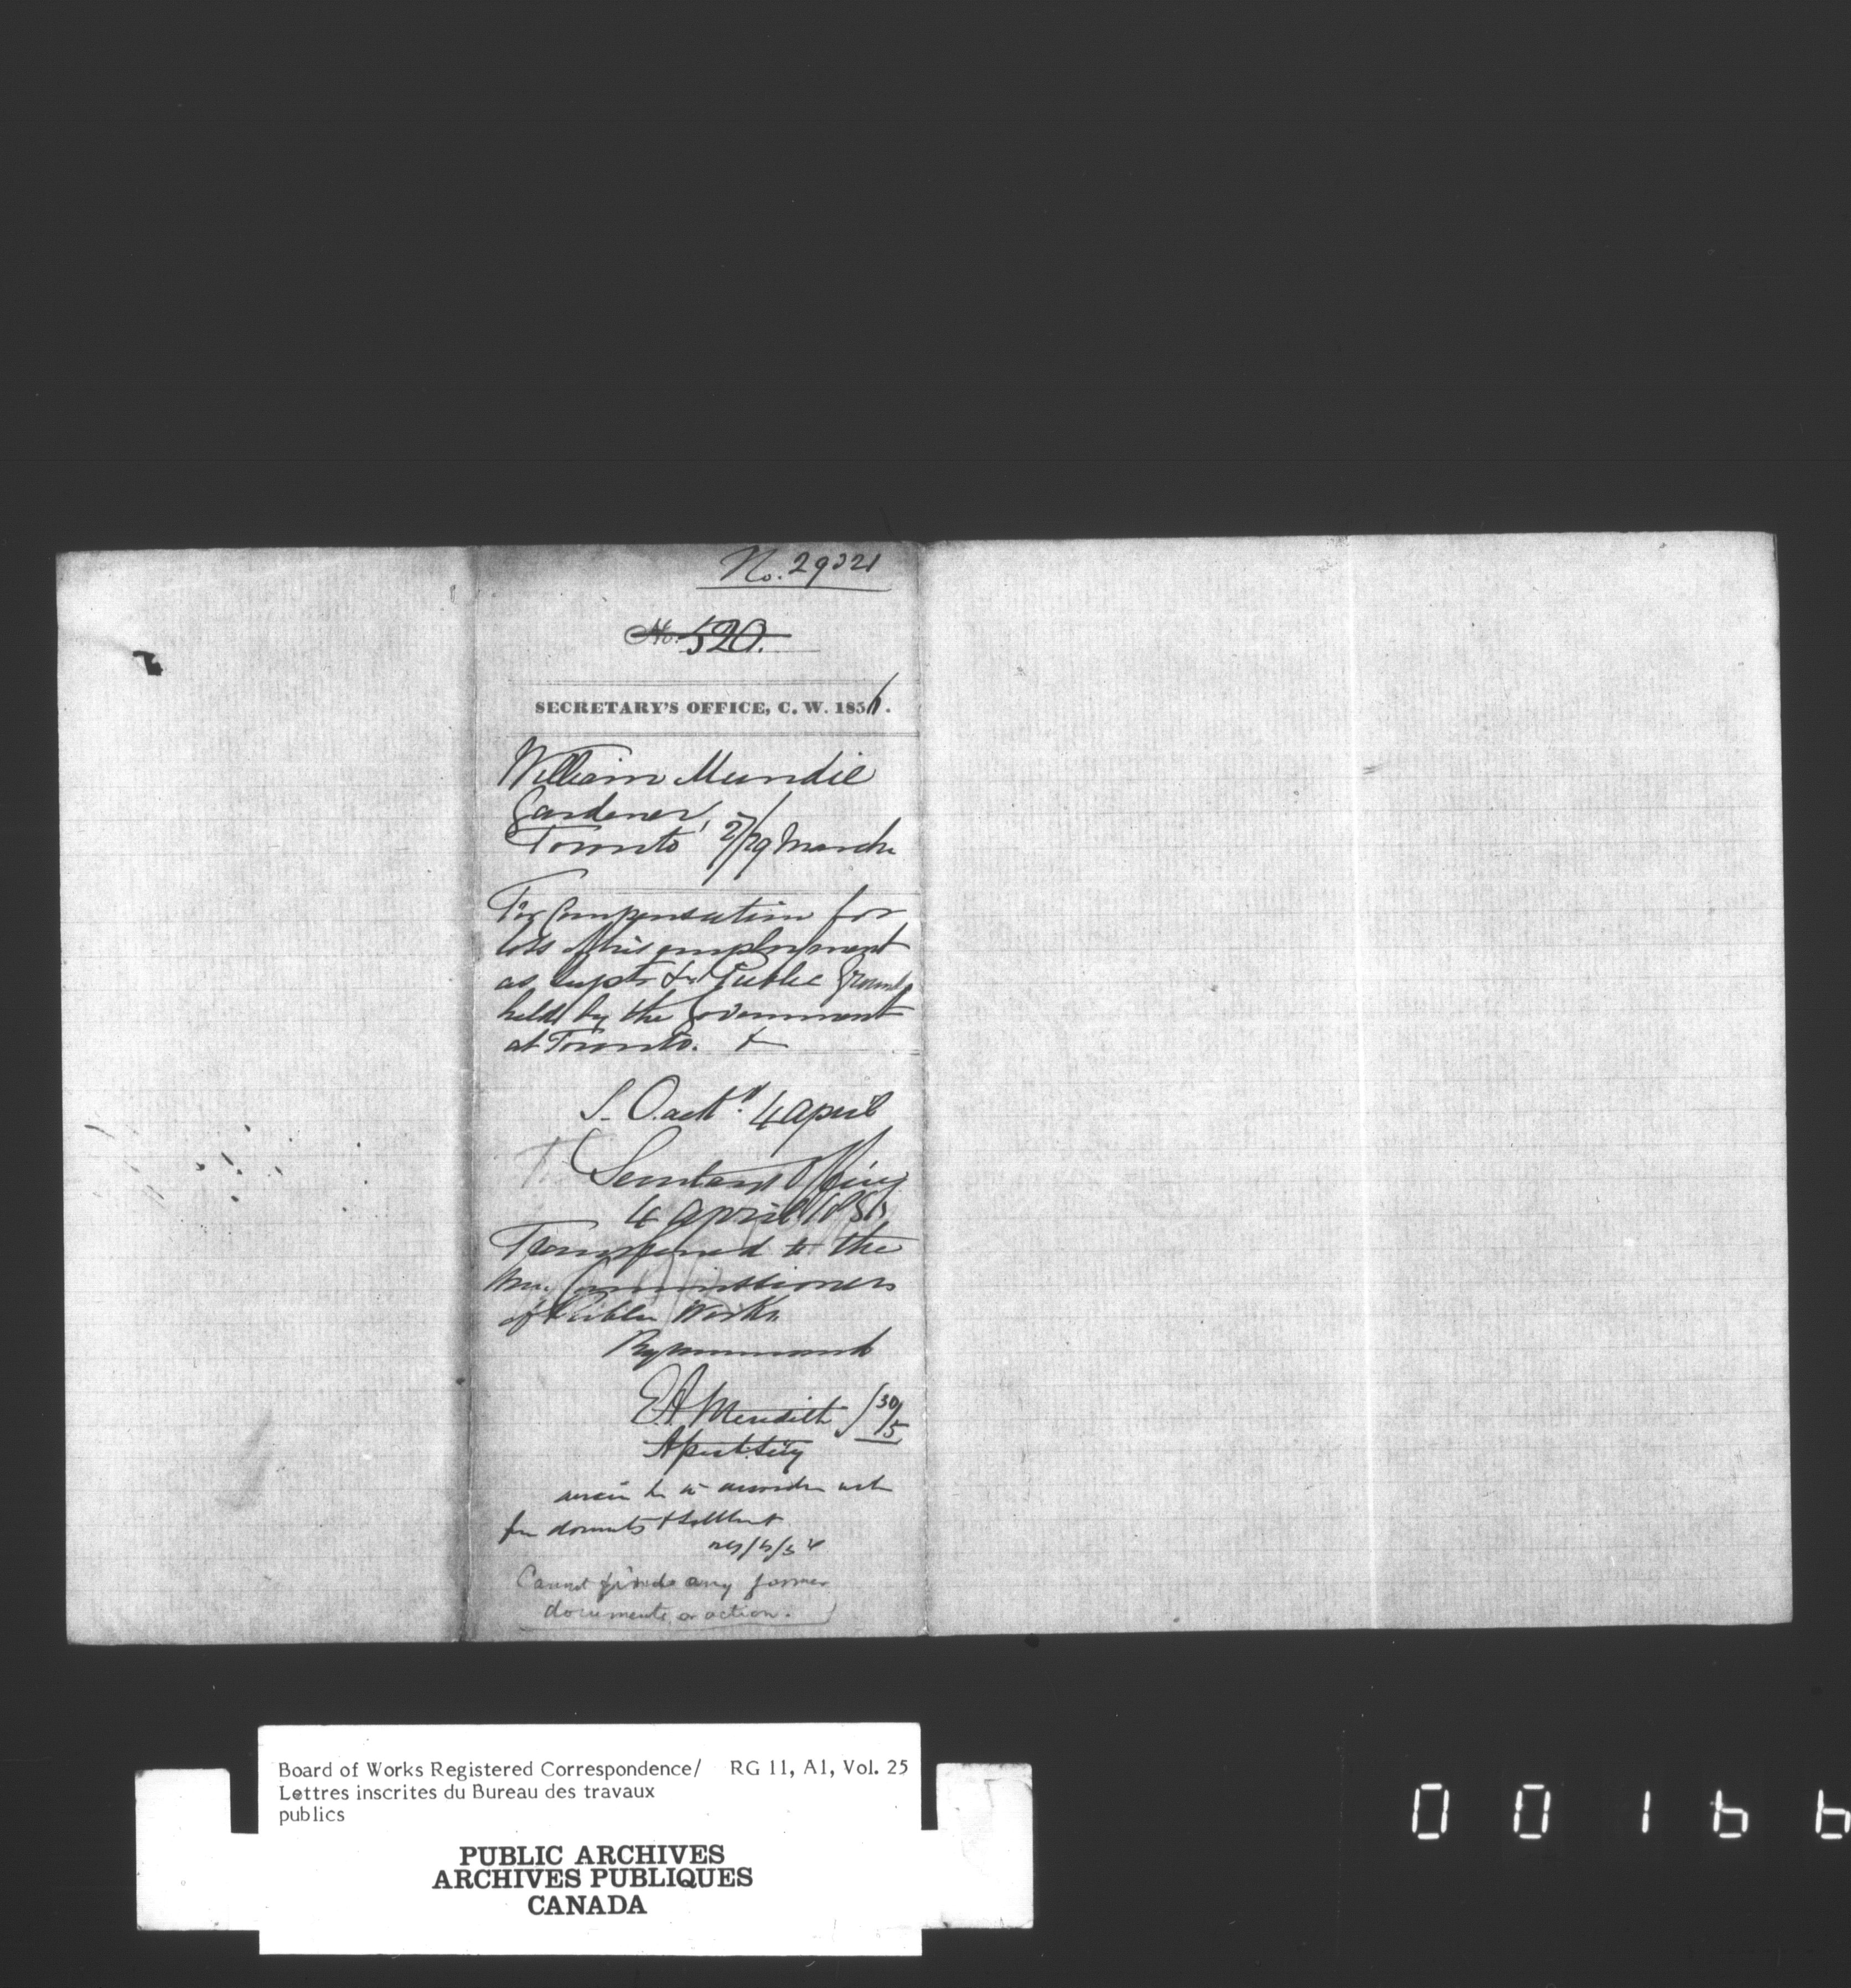 No. 29321
No. 520.
SECRETARY'S OFFICE, C. W. 1856.
William Mundie
Gardener,
Toronto 27/29 March
For Compensation for
loss of his employment
as Supt. for Public Grounds
held by the Government
at Toronto. &
S. O. ackd. 4 April
Secretary's Office
4 April 1856
Transferred to the
Hon. Commissioners
of Public Works
By command
E. A. Meredith 30/5
Asst. Secy

Cannot find any former
documents or action.
Board of Works Registered Correspondence/ RG 11, A1, Vol. 25
Lettres inscrites du Bureau des travaux
publics
PUBLIC ARCHIVES
ARCHIVES PUBLIQUES
CANADA
00166